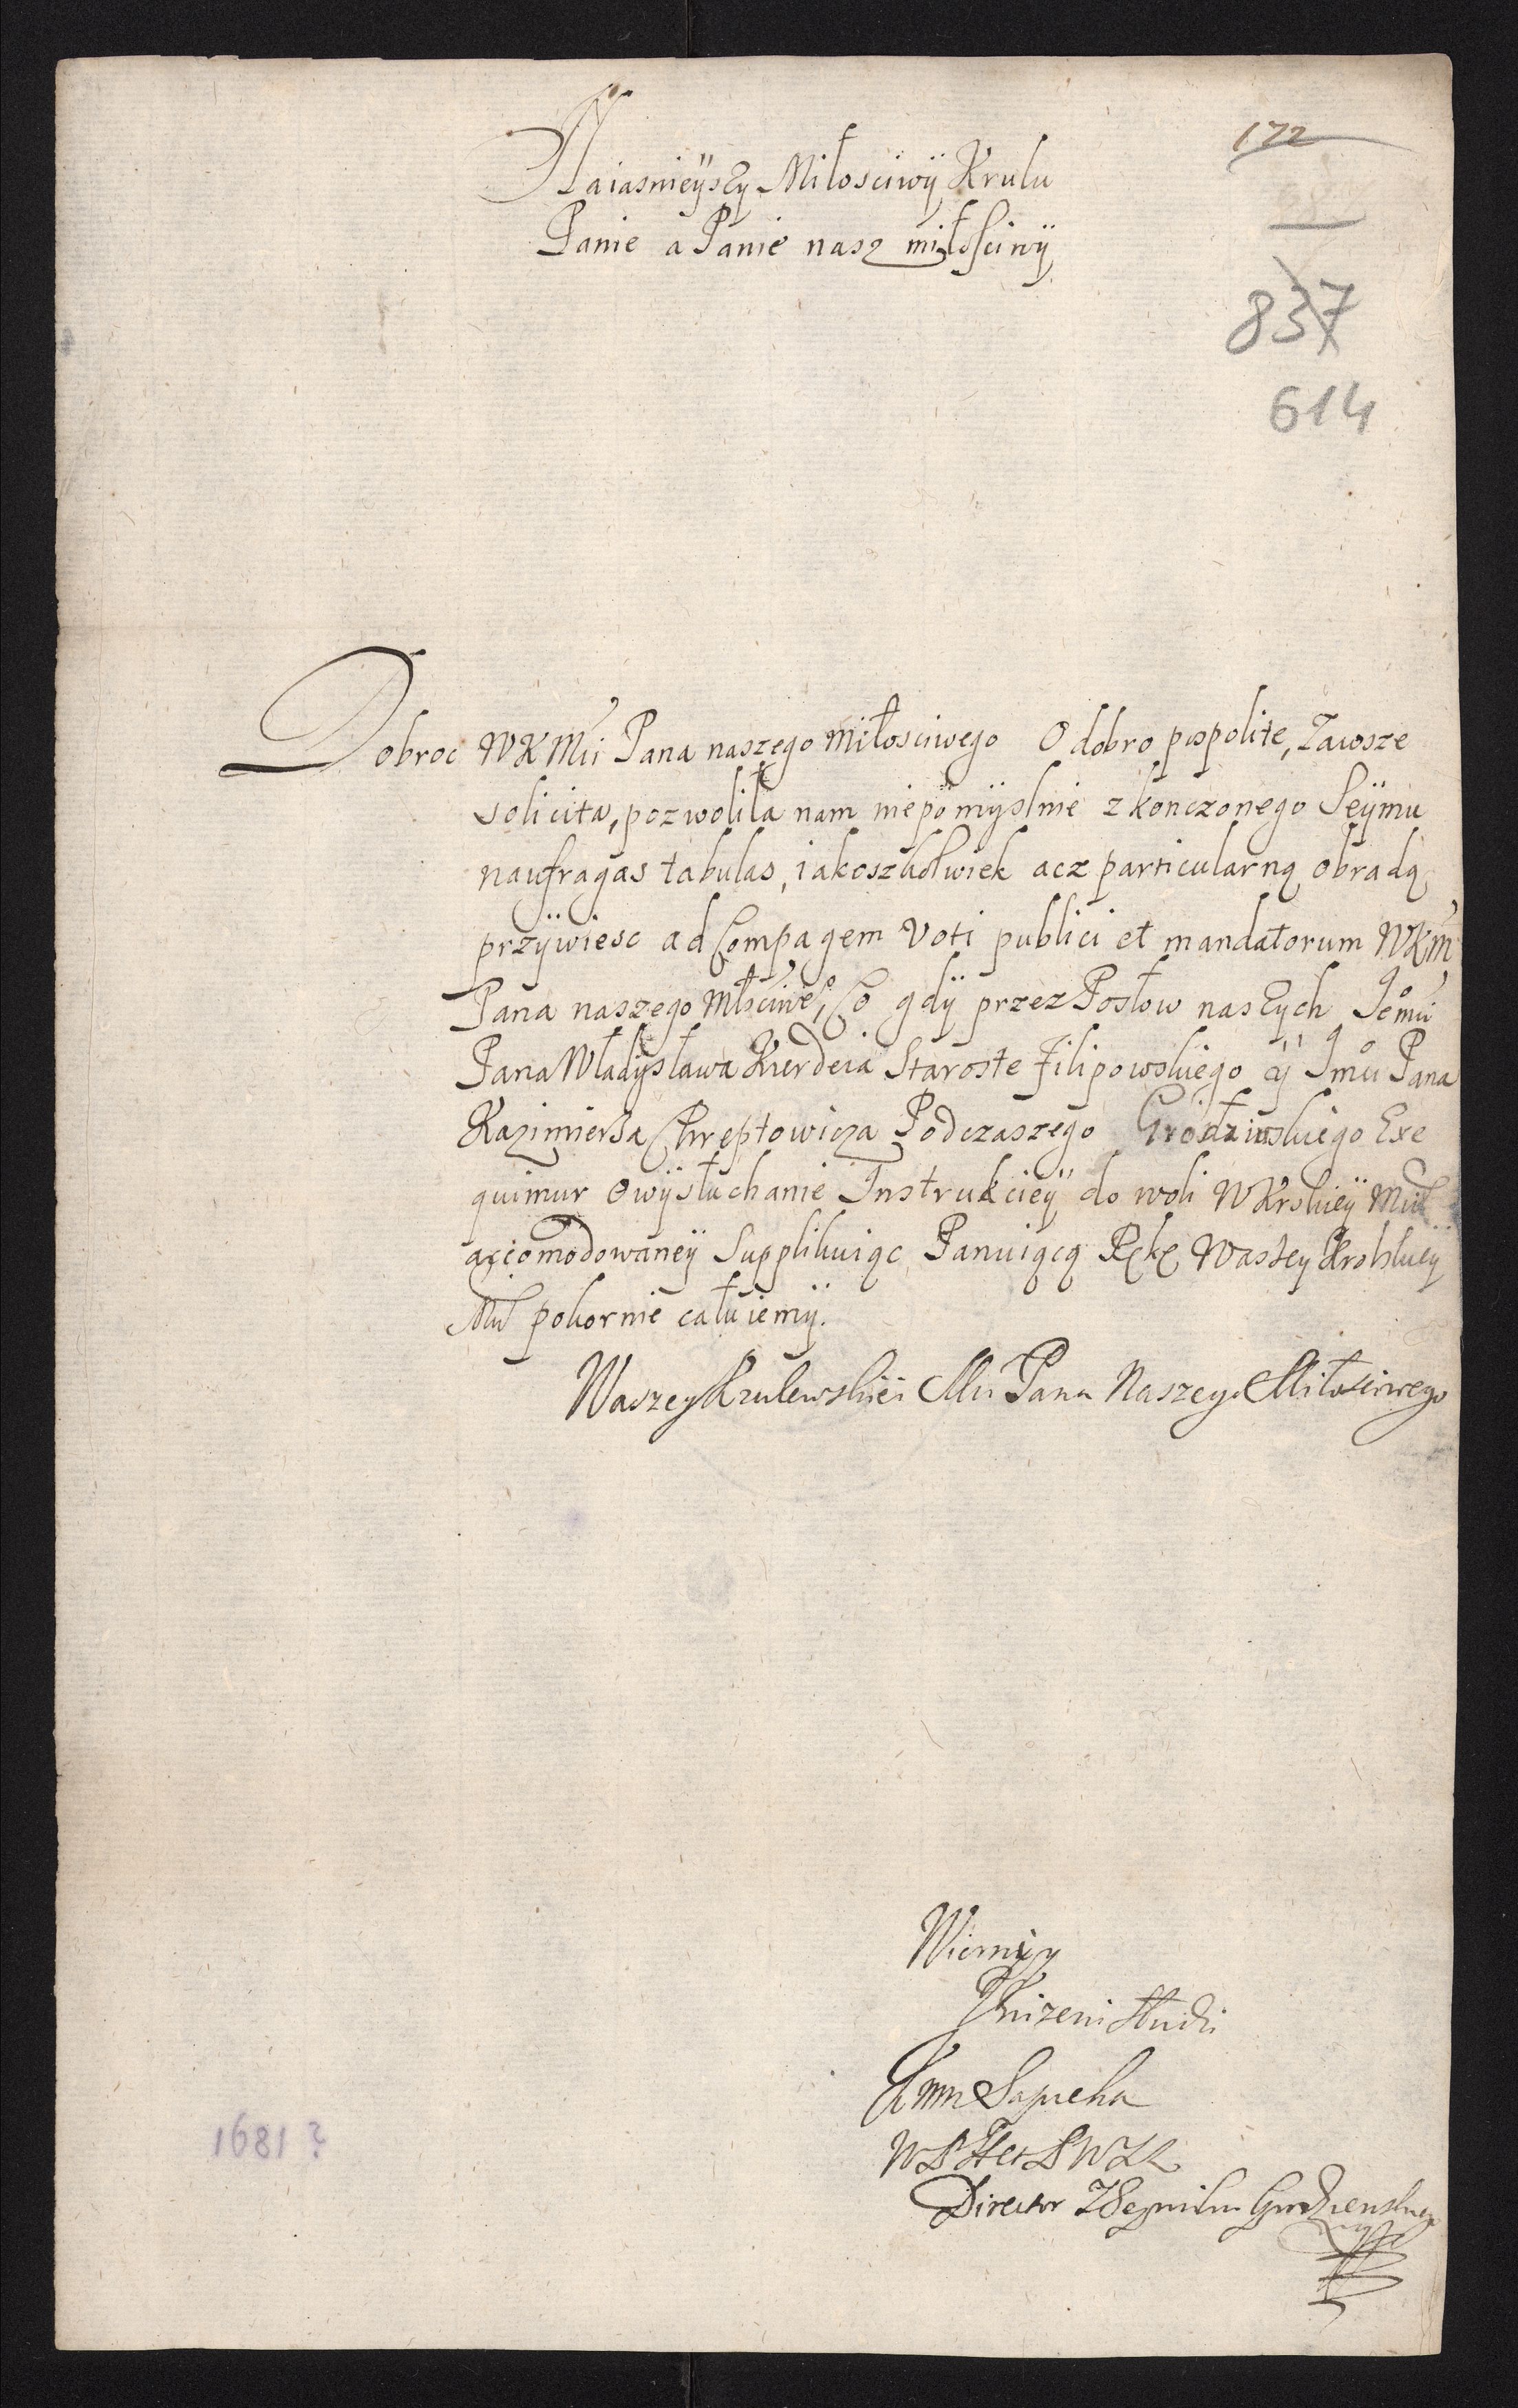 172
Naiasnieÿszy Miłosciwÿ Krulu
Panie a Panie nasz miłosciwÿ
837
614
Dobroc WKMci Pana naszego Miłosciwego O dobro pospolite, Zawsze
solicita, pozwoliła nam niepomÿslnie zkonczonego Seÿmu
naufragas tabulas, iakoszkolwiek acz particularną obradą
przÿwiesc ad Compagem Voti publici et mandatorum WKM
Pana naszego Młsciwe°, Co gdÿ przez Posłow naszych Jemci
Pana Władÿsława Kierdeia Staroste Filipowskiego ÿ Jmci Pana
Kazimierza Chreptowicza Podczaszego Grodzinskiego Exe
quimur O wÿsłuchanie Instrukcieÿ do woli WKrskieÿ Mci
accomodowaneÿ Supplikuiąc Panuiącą Rękę Waszey Krolskieÿ
Mci pokornie całuiemÿ.
Waszey Krulewskiei Mci Pana Naszego Miłosciwego
Wierni y
Unizeni Słudzi
Sapieha
Director Seymiku Grodzienskiego
1681?